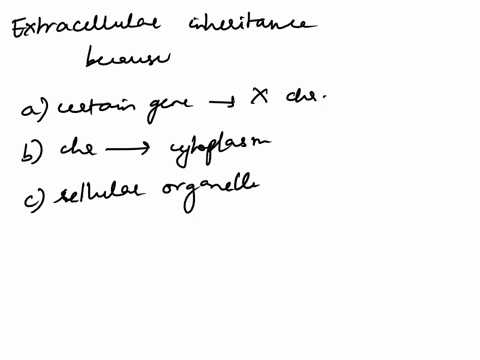 Extracellular inheritance
because
a) certain gene → X chr.
b) chr → cytoplasm
c) sellular organelle